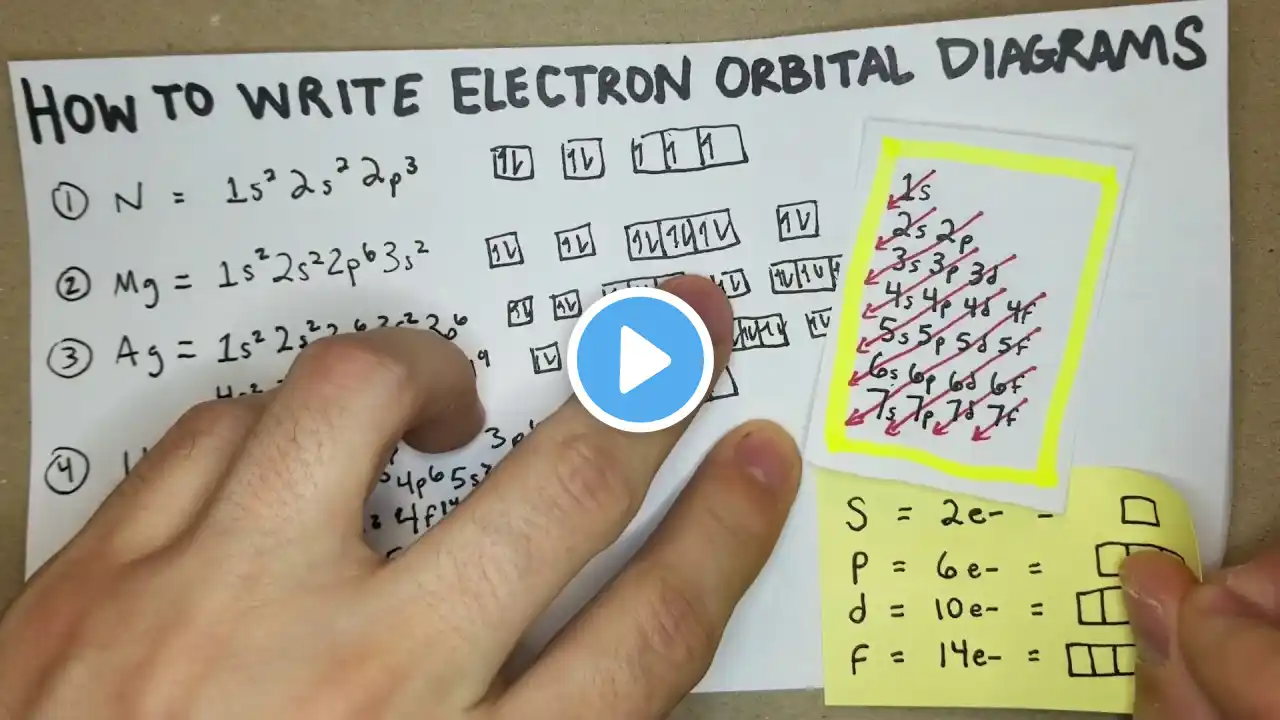 HOW TO WRITE ELECTRON ORBITAL DIAGRAMS
① N = 1s² 2s² 2p³
② Mg = 1s² 2s² 2p⁶ 3s²
③ Ag = 1s² 2s² 2p⁶ 3s² 3p⁶
④
4p⁶ 5s²
4f¹⁴
1s
2s 2p
3s 3p 3d
4s 4p 4d 4f
5s 5p 5d 5f
6s 6p 6d 6f
7s 7p 7d 7f
S = 2e- -
P = 6e- =
d = 10e- =
F = 14e- =